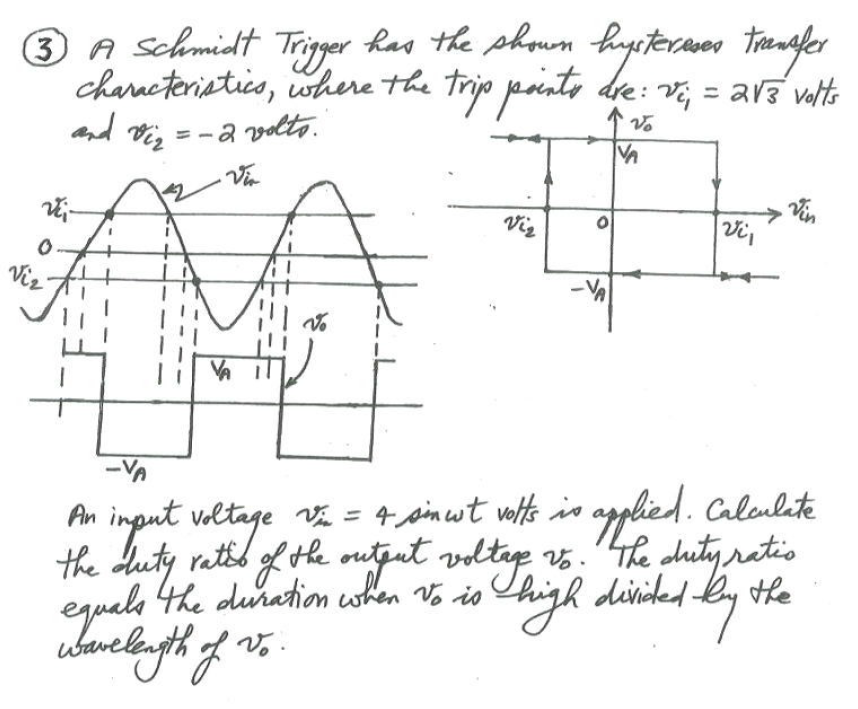 ③ A Schmidt Trigger has the shown hystereses transfer
characteristics, where the trip points are: vi₁ = 2√3 volts
and vi₂ = -2 volts.
vo
VA
vin
vi₁
0
vi₂
vin
vi₂
0
vi₁
-VA
vo
VA
-VA
An input voltage vin = 4 sinwt volts is applied. Calculate
the duty ratio of the output voltage vo. "The duty ratio
equals the duration when vo is high divided by the
wavelength of vo.